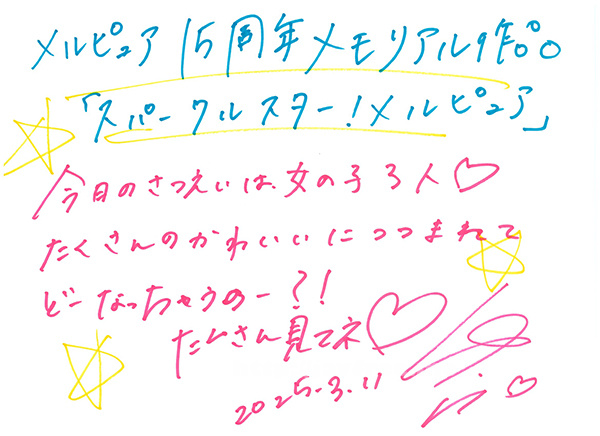 メルピュア 15周年メモリアル作。。
「スパークルスター!メルピュア」
今日のさつえいは、女の子3人♡
たくさんのかわいいにつつまれて
どーなっちゃうのー?!
たくさん見てネ♡
2025.3.11